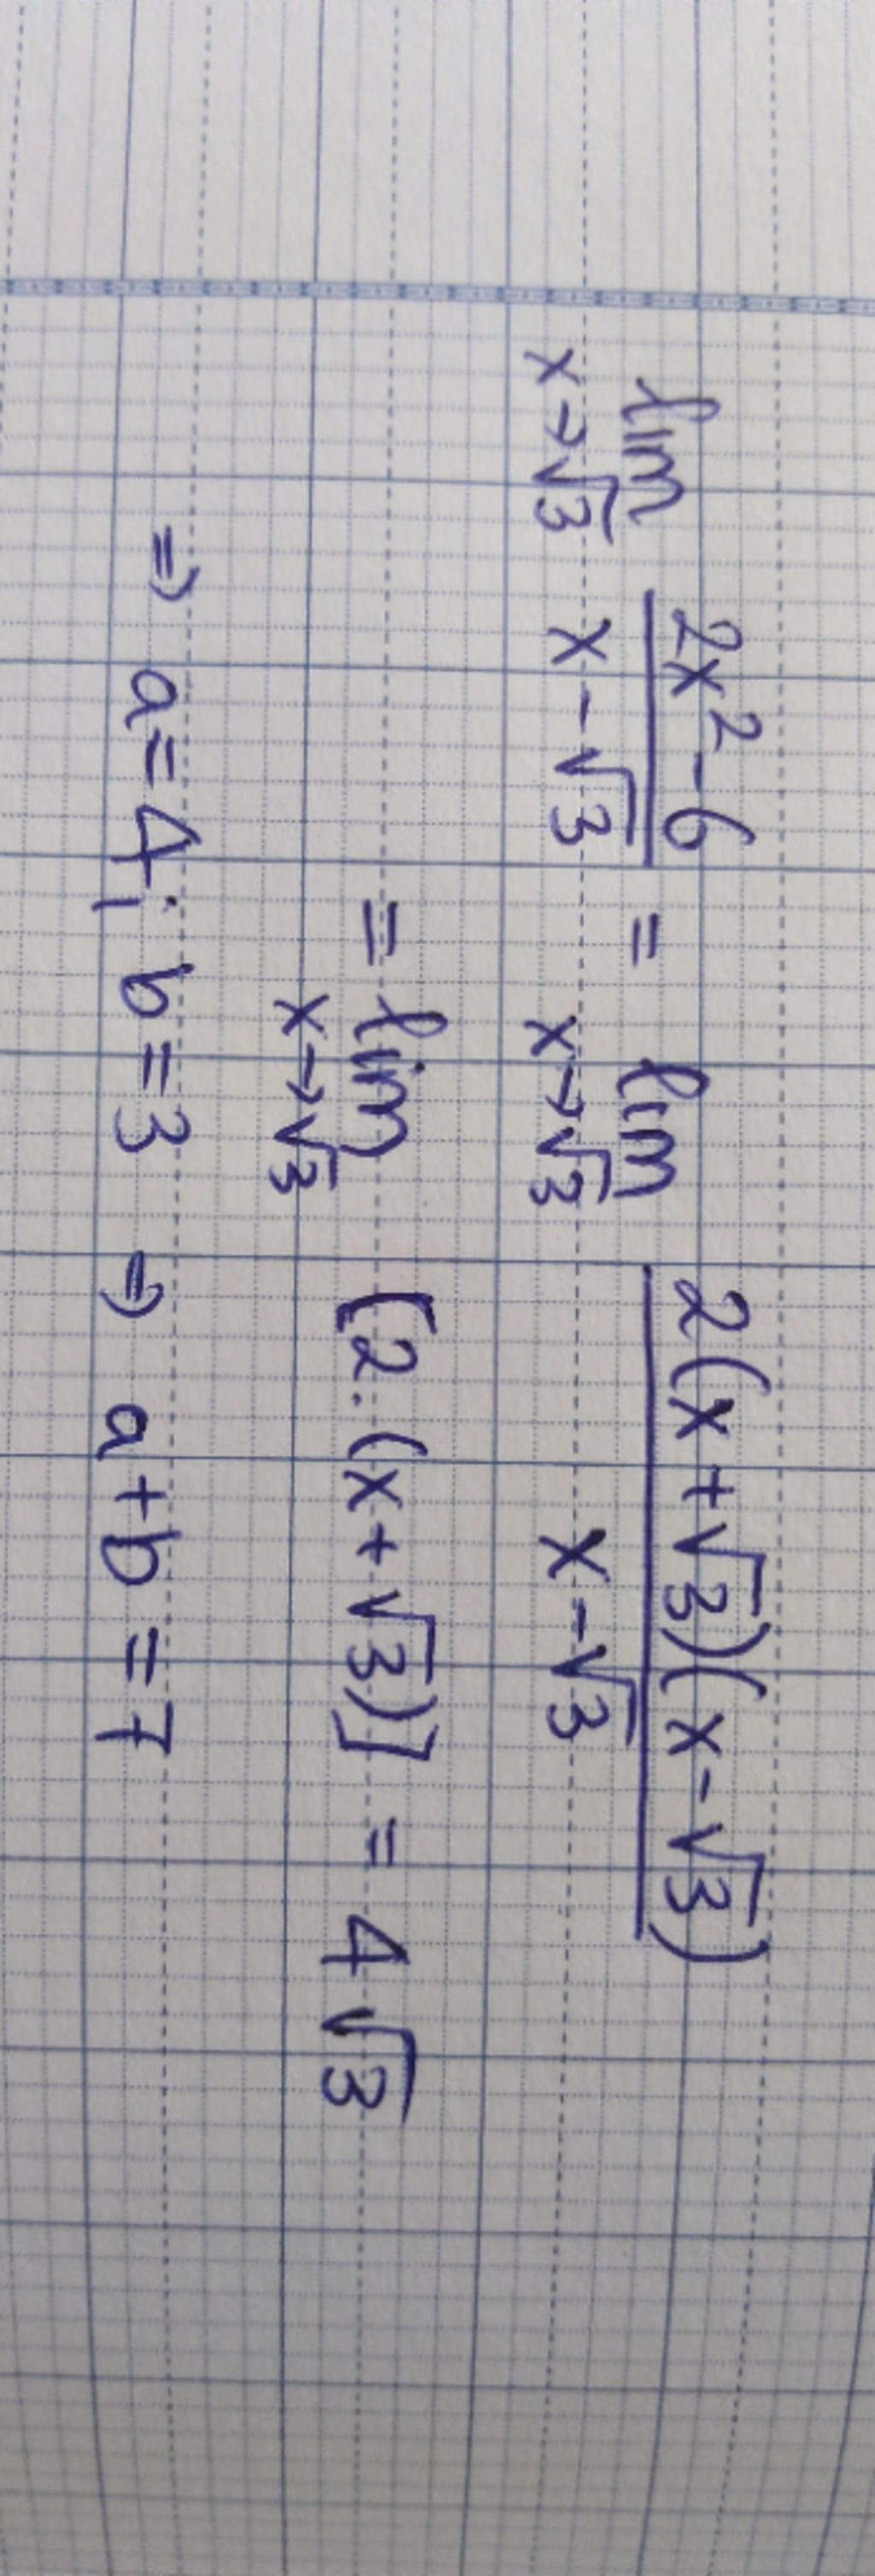 lim x→√3 (2x² - 6)/(x - √3) = lim x→√3 (2(x + √3)(x - √3))/(x - √3)
= lim x→√3 [2.(x + √3)] = 4√3
⇒ a = 4; b = 3 ⇒ a + b = 7